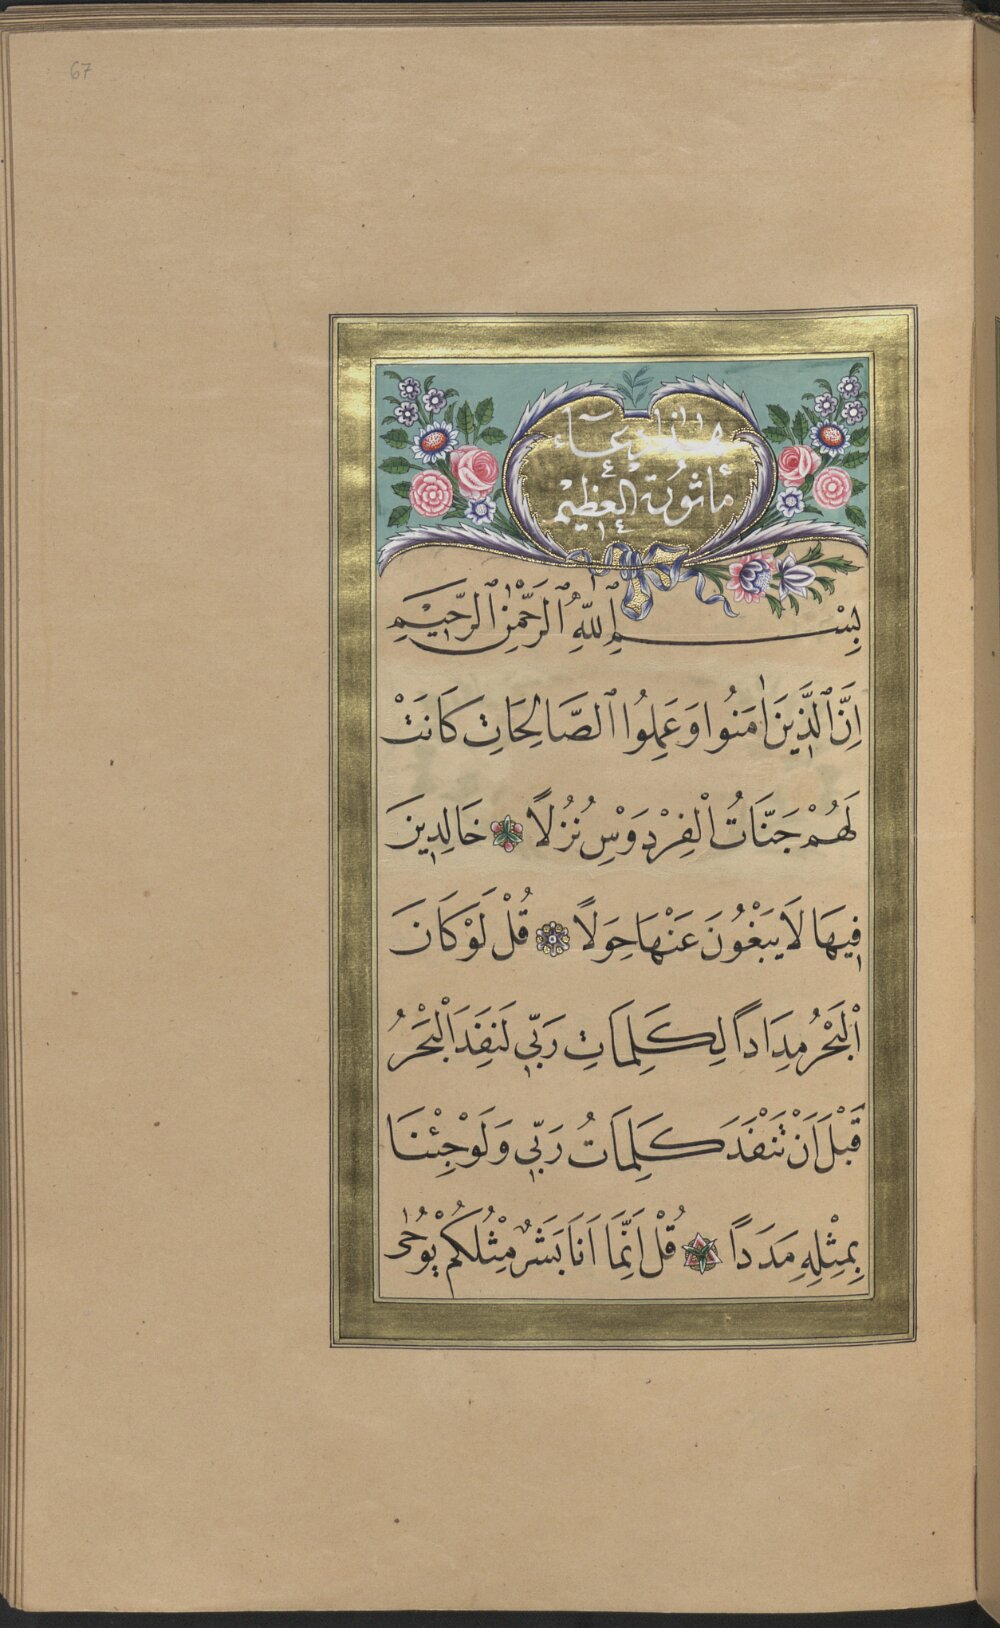 67
هذا دعاء
مأثورة العظيم
بِسْمِ ٱللّٰهِ ٱلرَّحْمٰنِ ٱلرَّحِيمِ
اِنَّ ٱلَّذِينَ اٰمَنُوا وَعَمِلُوا ٱلصَّالِحَاتِ كَانَتْ
لَهُمْ جَنَّاتُ ٱلْفِرْدَوْسِ نُزُلاً خَالِدِينَ
فِيهَا لَا يَبْغُونَ عَنْهَا حِوَلاً قُلْ لَوْ كَانَ
ٱلْبَحْرُ مِدَاداً لِكَلِمَاتِ رَبِّي لَنَفِدَ ٱلْبَحْرُ
قَبْلَ اَنْ تَنْفَدَ كَلِمَاتُ رَبِّي وَلَوْ جِئْنَا
بِمِثْلِهِ مَدَداً قُلْ اِنَّمَا اَنَا بَشَرٌ مِثْلُكُمْ يُوْحٰى